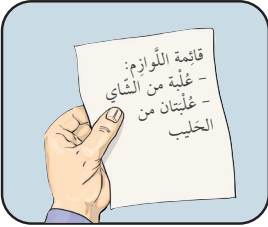 قائِمة اللَّوازِم:
– عُلْبة من الشّاي
– عُلْبَتان من
الحَليب